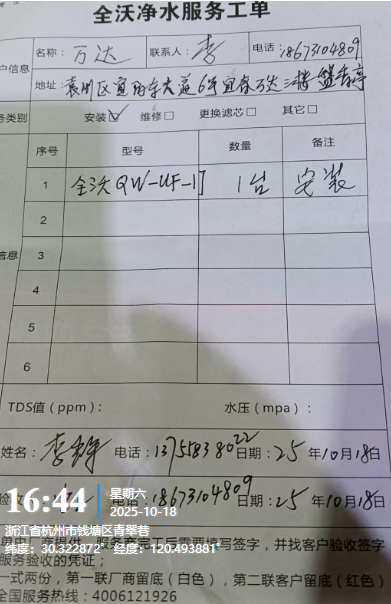 全沃净水服务工单
户信息
名称：万达 联系人：李 电话：18673104809
地址：袁州区宜阳东大道6号宜春万达三楼盘香亭
务类别 安装☑ 维修☐ 更换滤芯☐ 其它☐
序号 型号 数量 备注
1 全沃QW-UF-17 1台 安装
2
信息 3
4
5
6
TDS值（ppm）： 水压（mpa）：
姓名： 电话：13755838022 日期：25年10月18日
验收 电话：18673104809 日期：25年10月18日
16:44 星期六
2025-10-18
浙江省杭州市钱塘区青翠巷
纬度：30.322872° 经度：120.493881°
服务完工后需要填写签字，并找客户验收签字
服务验收的凭证；
一式两份，第一联厂商留底（白色），第二联客户留底（红色）
全国服务热线：4006121926